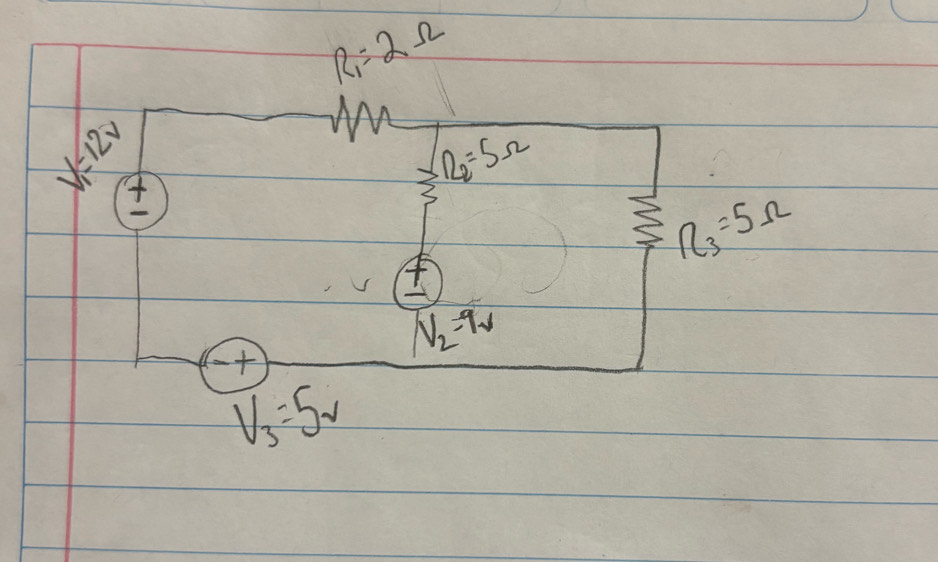 R₁=2Ω
V₁=12v
R₂=5Ω
R₃=5Ω
V₂=9v
V₃=5v